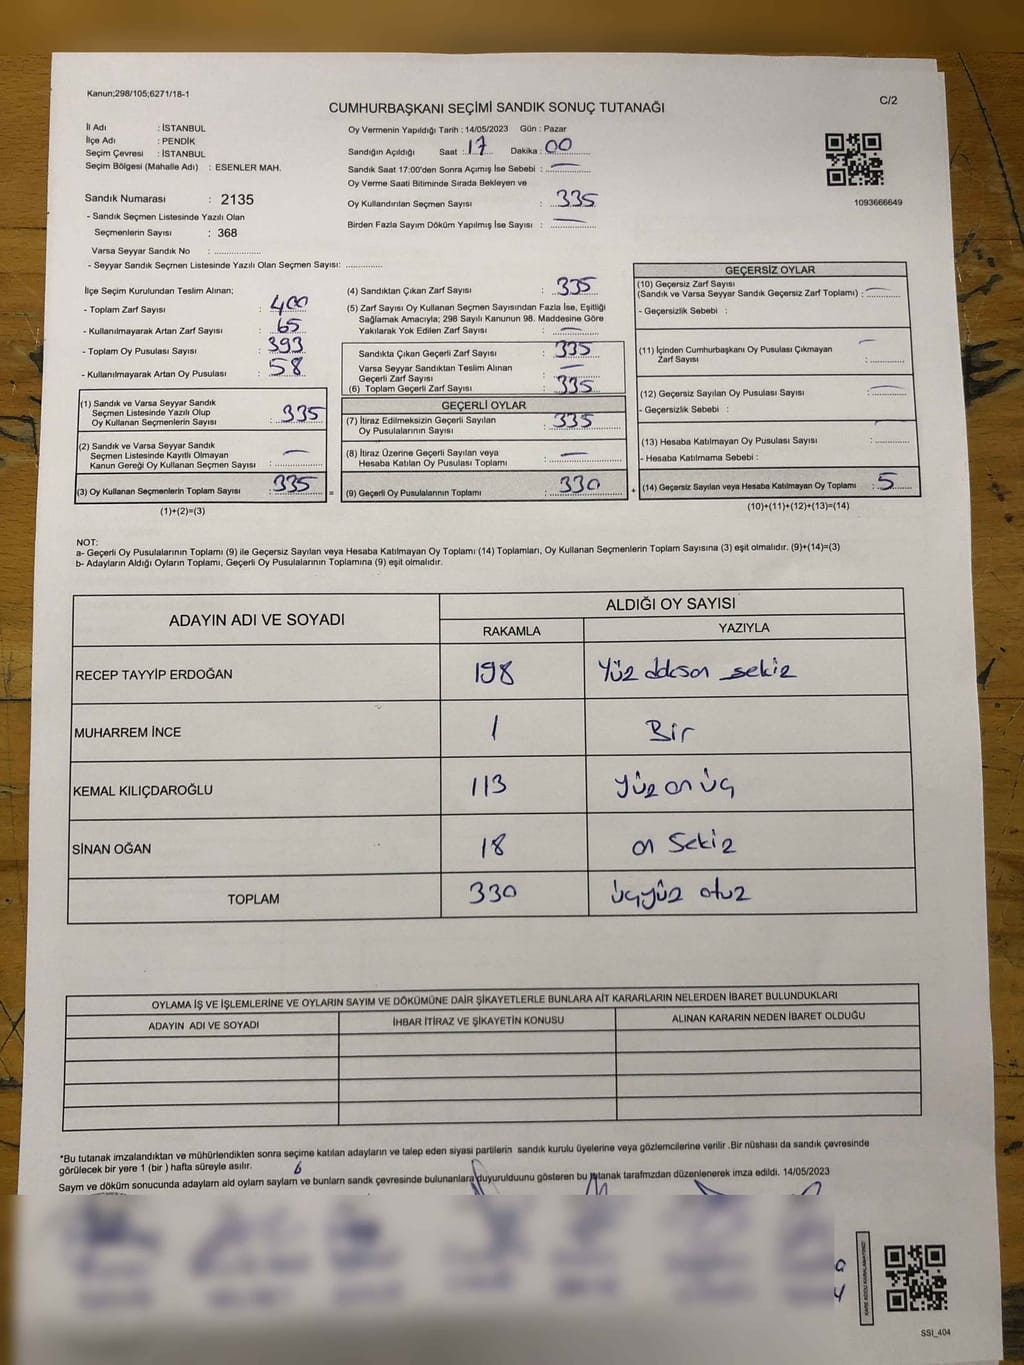 Kanun;298/105;6271/18-1
CUMHURBAŞKANI SEÇİMİ SANDIK SONUÇ TUTANAĞI
C/2
İl Adı : İSTANBUL
İlçe Adı : PENDİK
Seçim Çevresi : İSTANBUL
Seçim Bölgesi (Mahalle Adı) : ESENLER MAH.
Sandık Numarası : 2135
- Sandık Seçmen Listesinde Yazılı Olan
Seçmenlerin Sayısı : 368
Varsa Seyyar Sandık No : ..................
- Seyyar Sandık Seçmen Listesinde Yazılı Olan Seçmen Sayısı: ..............
Oy Vermenin Yapıldığı Tarih : 14/05/2023 Gün : Pazar
Sandığın Açıldığı Saat : 17 Dakika : 00
Sandık Saat 17:00'den Sonra Açımış İse Sebebi : —
Oy Verme Saati Bitiminde Sırada Bekleyen ve
Oy Kullandırılan Seçmen Sayısı : 335
Birden Fazla Sayım Döküm Yapılmış İse Sayısı : —
1093666649
İlçe Seçim Kurulundan Teslim Alınan;
- Toplam Zarf Sayısı : 400
- Kullanılmayarak Artan Zarf Sayısı : 65
- Toplam Oy Pusulası Sayısı : 393
- Kullanılmayarak Artan Oy Pusulası : 58
(1) Sandık ve Varsa Seyyar Sandık
Seçmen Listesinde Yazılı Olup
Oy Kullanan Seçmenlerin Sayısı : 335
(2) Sandık ve Varsa Seyyar Sandık
Seçmen Listesinde Kayıtlı Olmayan
Kanun Gereği Oy Kullanan Seçmen Sayısı : —
(3) Oy Kullanan Seçmenlerin Toplam Sayısı : 335
(1)+(2)=(3)
(4) Sandıktan Çıkan Zarf Sayısı : 335
(5) Zarf Sayısı Oy Kullanan Seçmen Sayısından Fazla İse, Eşitliği
Sağlamak Amacıyla; 298 Sayılı Kanunun 98. Maddesine Göre
Yakılarak Yok Edilen Zarf Sayısı : —
Sandıkta Çıkan Geçerli Zarf Sayısı : 335
Varsa Seyyar Sandıktan Teslim Alınan
Geçerli Zarf Sayısı : —
(6) Toplam Geçerli Zarf Sayısı : 335
GEÇERLİ OYLAR
(7) İtiraz Edilmeksizin Geçerli Sayılan
Oy Pusulalarının Sayısı : 335
(8) İtiraz Üzerine Geçerli Sayılan veya
Hesaba Katılan Oy Pusulası Toplamı : —
= (9) Geçerli Oy Pusulalarının Toplamı : 330
GEÇERSİZ OYLAR
(10) Geçersiz Zarf Sayısı
(Sandık ve Varsa Seyyar Sandık Geçersiz Zarf Toplamı) : —
- Geçersizlik Sebebi :
(11) İçinden Cumhurbaşkanı Oy Pusulası Çıkmayan
Zarf Sayısı : —
(12) Geçersiz Sayılan Oy Pusulası Sayısı : —
- Geçersizlik Sebebi :
(13) Hesaba Katılmayan Oy Pusulası Sayısı : —
- Hesaba Katılmama Sebebi :
+ (14) Geçersiz Sayılan veya Hesaba Katılmayan Oy Toplamı : 5
(10)+(11)+(12)+(13)=(14)
NOT:
a- Geçerli Oy Pusulalarının Toplamı (9) ile Geçersiz Sayılan veya Hesaba Katılmayan Oy Toplamı (14) Toplamları, Oy Kullanan Seçmenlerin Toplam Sayısına (3) eşit olmalıdır. (9)+(14)=(3)
b- Adayların Aldığı Oyların Toplamı, Geçerli Oy Pusulalarının Toplamına (9) eşit olmalıdır.
ADAYIN ADI VE SOYADI ALDIĞI OY SAYISI
RAKAMLA YAZIYLA
RECEP TAYYİP ERDOĞAN 198 Yüz doksan sekiz
MUHARREM İNCE 1 Bir
KEMAL KILIÇDAROĞLU 113 Yüz on üç
SİNAN OĞAN 18 on sekiz
TOPLAM 330 üçyüz otuz
OYLAMA İŞ VE İŞLEMLERİNE VE OYLARIN SAYIM VE DÖKÜMÜNE DAİR ŞİKAYETLERLE BUNLARA AİT KARARLARIN NELERDEN İBARET BULUNDUKLARI
ADAYIN ADI VE SOYADI İHBAR İTİRAZ VE ŞİKAYETİN KONUSU ALINAN KARARIN NEDEN İBARET OLDUĞU
*Bu tutanak imzalandıktan ve mühürlendikten sonra seçime katılan adayların ve talep eden siyasi partilerin sandık kurulu üyelerine veya gözlemcilerine verilir .Bir nüshası da sandık çevresinde
görülecek bir yere 1 (bir ) hafta süreyle asılır. 6
Saym ve döküm sonucunda adaylarn ald oylarn saylarn ve bunlarn sandk çevresinde bulunanlara duyurulduunu gösteren bu tutanak tarafmzdan düzenlenerek imza edildi. 14/05/2023
SSİ_404